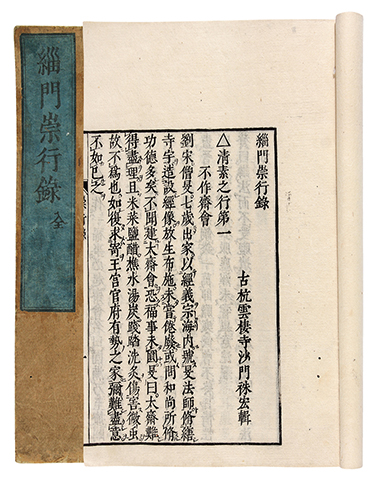 緇門崇行錄 全
緇門崇行錄
古杭雲棲寺沙門袾宏輯
△清素之行第一
不作齋會
劉宋僧旻七歲出家以經義宗海內號旻法師脩繕
寺宇造設經像放生布施未嘗倦廢或問和尚所脩
功德多矣不聞建大齋會恐福事未圓旻曰大齋難
得盡理且米菜鹽醋樵水湯炭踐踏洗炙傷害微虫
故不為也如復求寄王宮官府有勢之家彌難盡意
不如已之